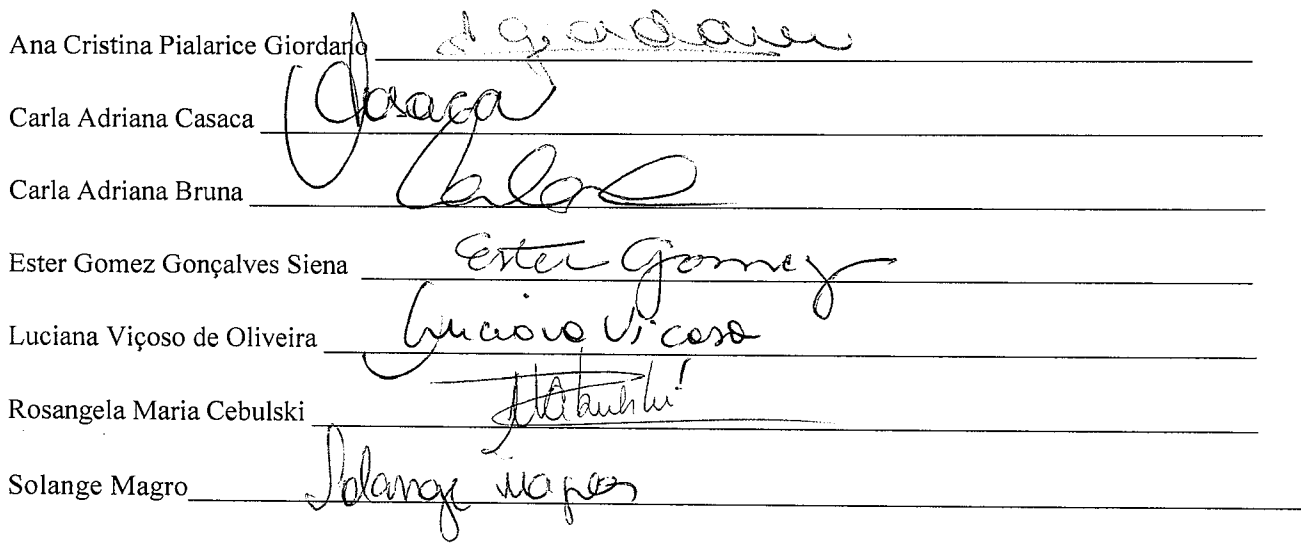 Ana Cristina Pialarice Giordano Giordano
Carla Adriana Casaca Casaca
Carla Adriana Bruna Carla
Ester Gomez Gonçalves Siena Ester Gomez
Luciana Viçoso de Oliveira Luciana Viçoso
Rosangela Maria Cebulski
Solange Magro Solange Magro